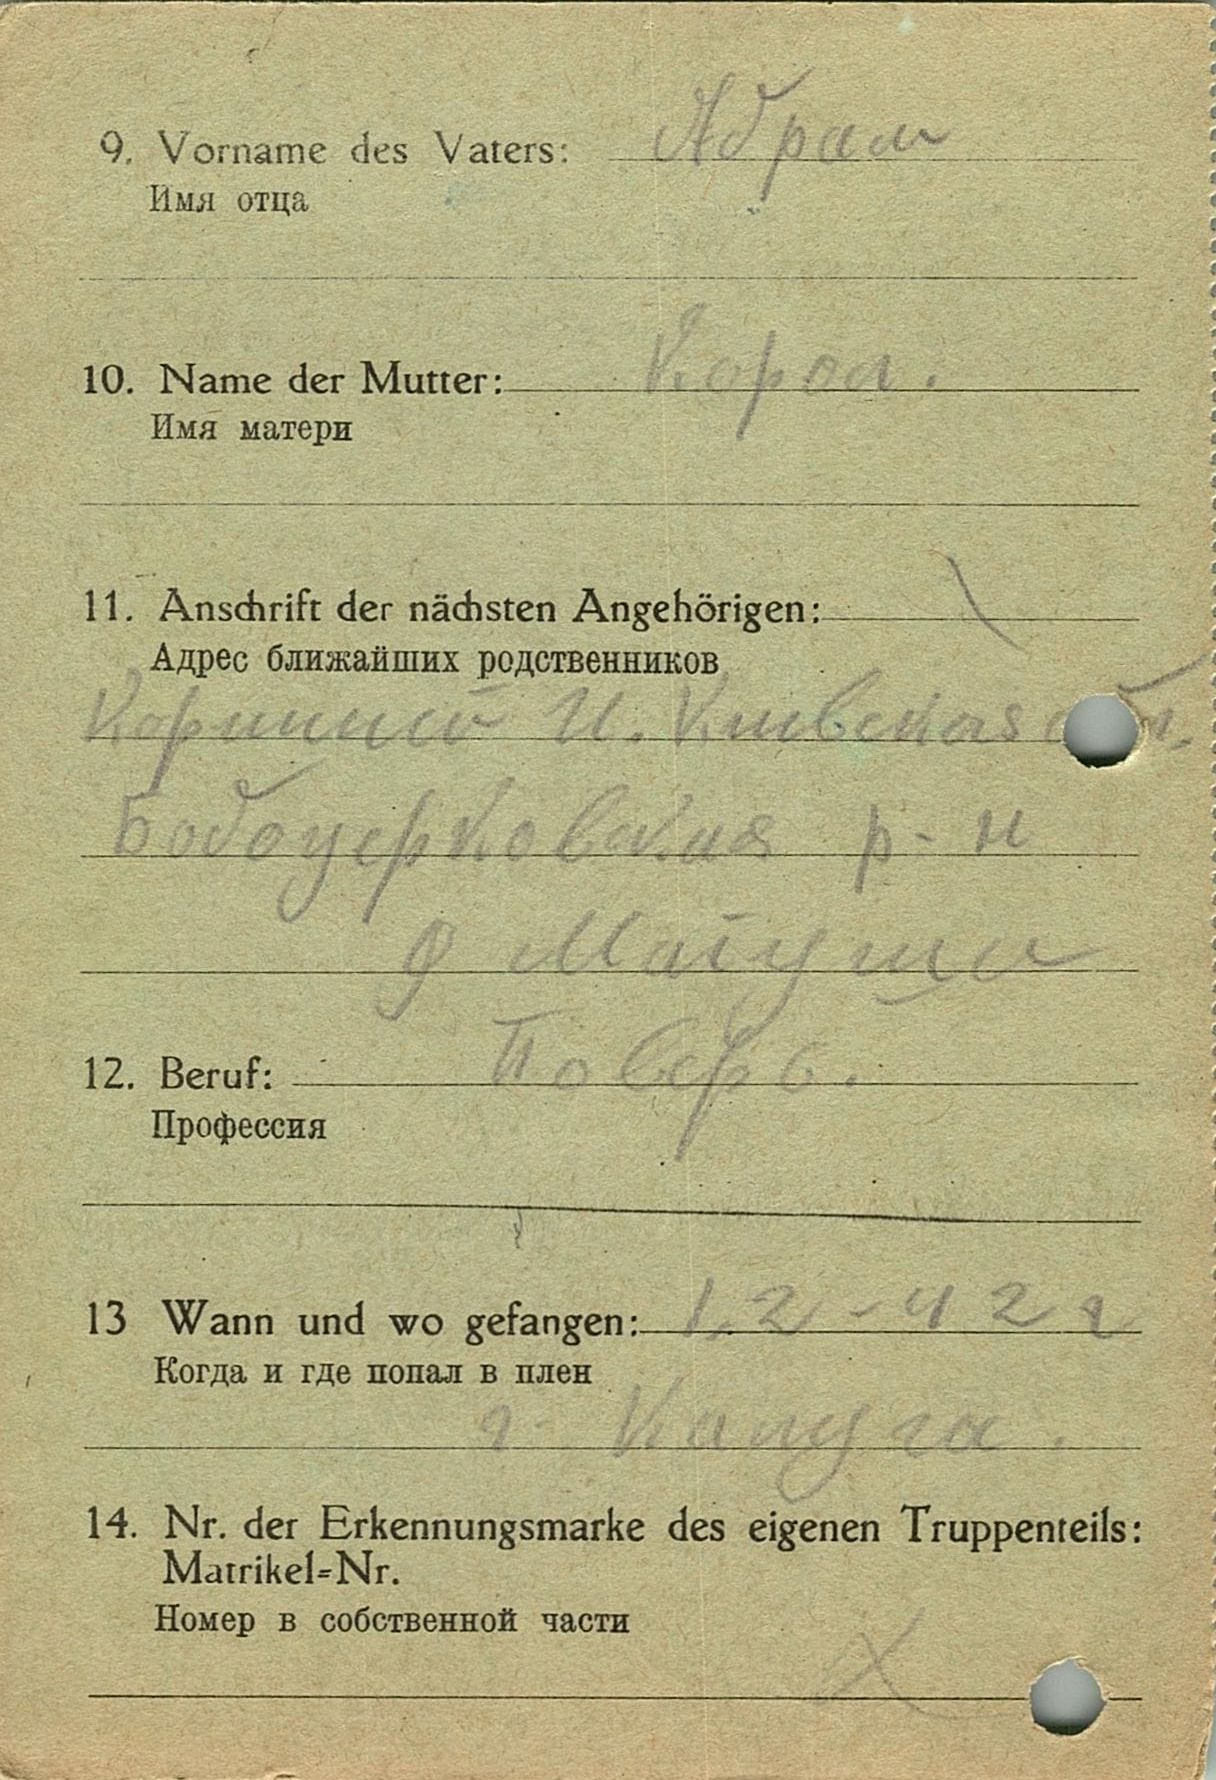 9. Vorname des Vaters: Абрам
Имя отца
10. Name der Mutter: Корол.
Имя матери
11. Anschrift der nächsten Angehörigen:
Адрес ближайших родственников
И. Киевская
р-н
12. Beruf: Поверъ.
Профессия
13 Wann und wo gefangen: 1.2-42 г
Когда и где попал в плен
г. Калуга.
14. Nr. der Erkennungsmarke des eigenen Truppenteils:
Matrikel-Nr.
Номер в собственной части
X